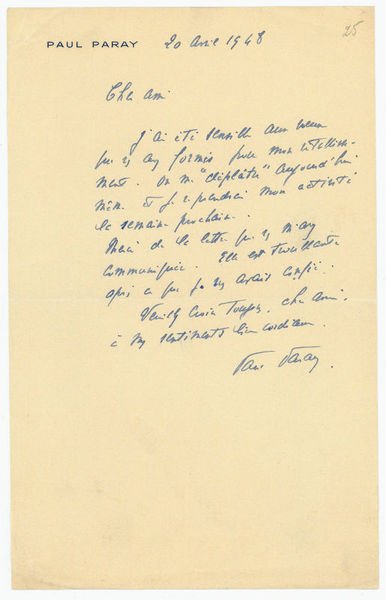 25
PAUL PARAY 20 Avril 1948
Cher ami
J'ai été sensible aux vœux
que vs avez formés pour mon rétablisse-
ment. On m'a "déplâtré" aujourd'hui
même et je reprendrai mon activité
la semaine prochaine.
Merci de la lettre que vs m'avez
communiquée. Elle est
après ce que je vs avais confié.
Veuillez croire toujours, cher ami,
à mes sentiments bien cordiaux.
Paul Paray.